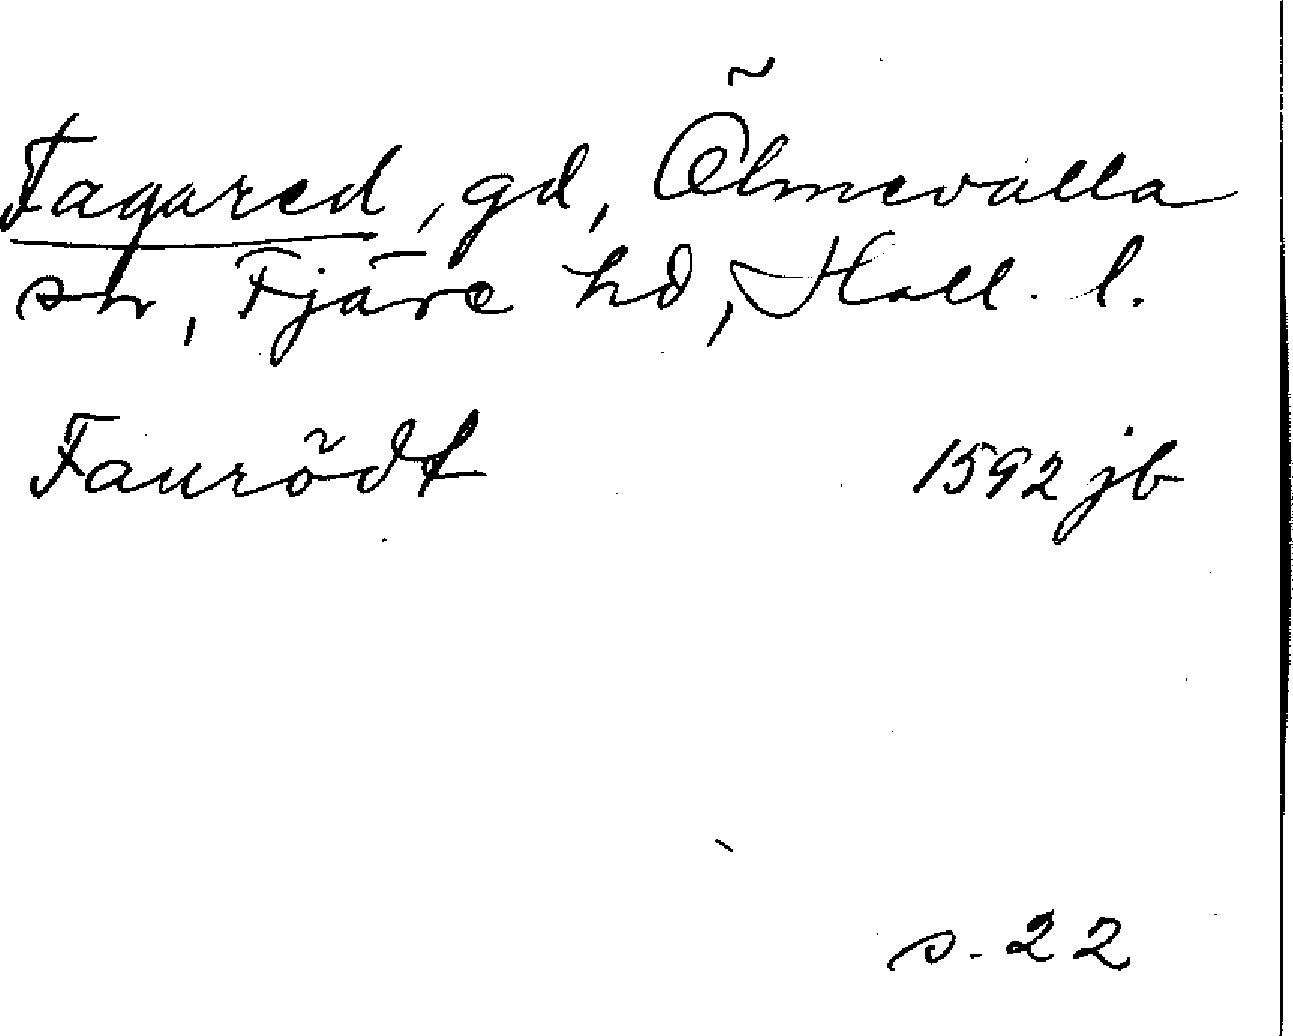 Fagared, gd, Ölmevalla
sn, Fjäre hd, Hall. l.
Faurödt 1592 jb
s. 22